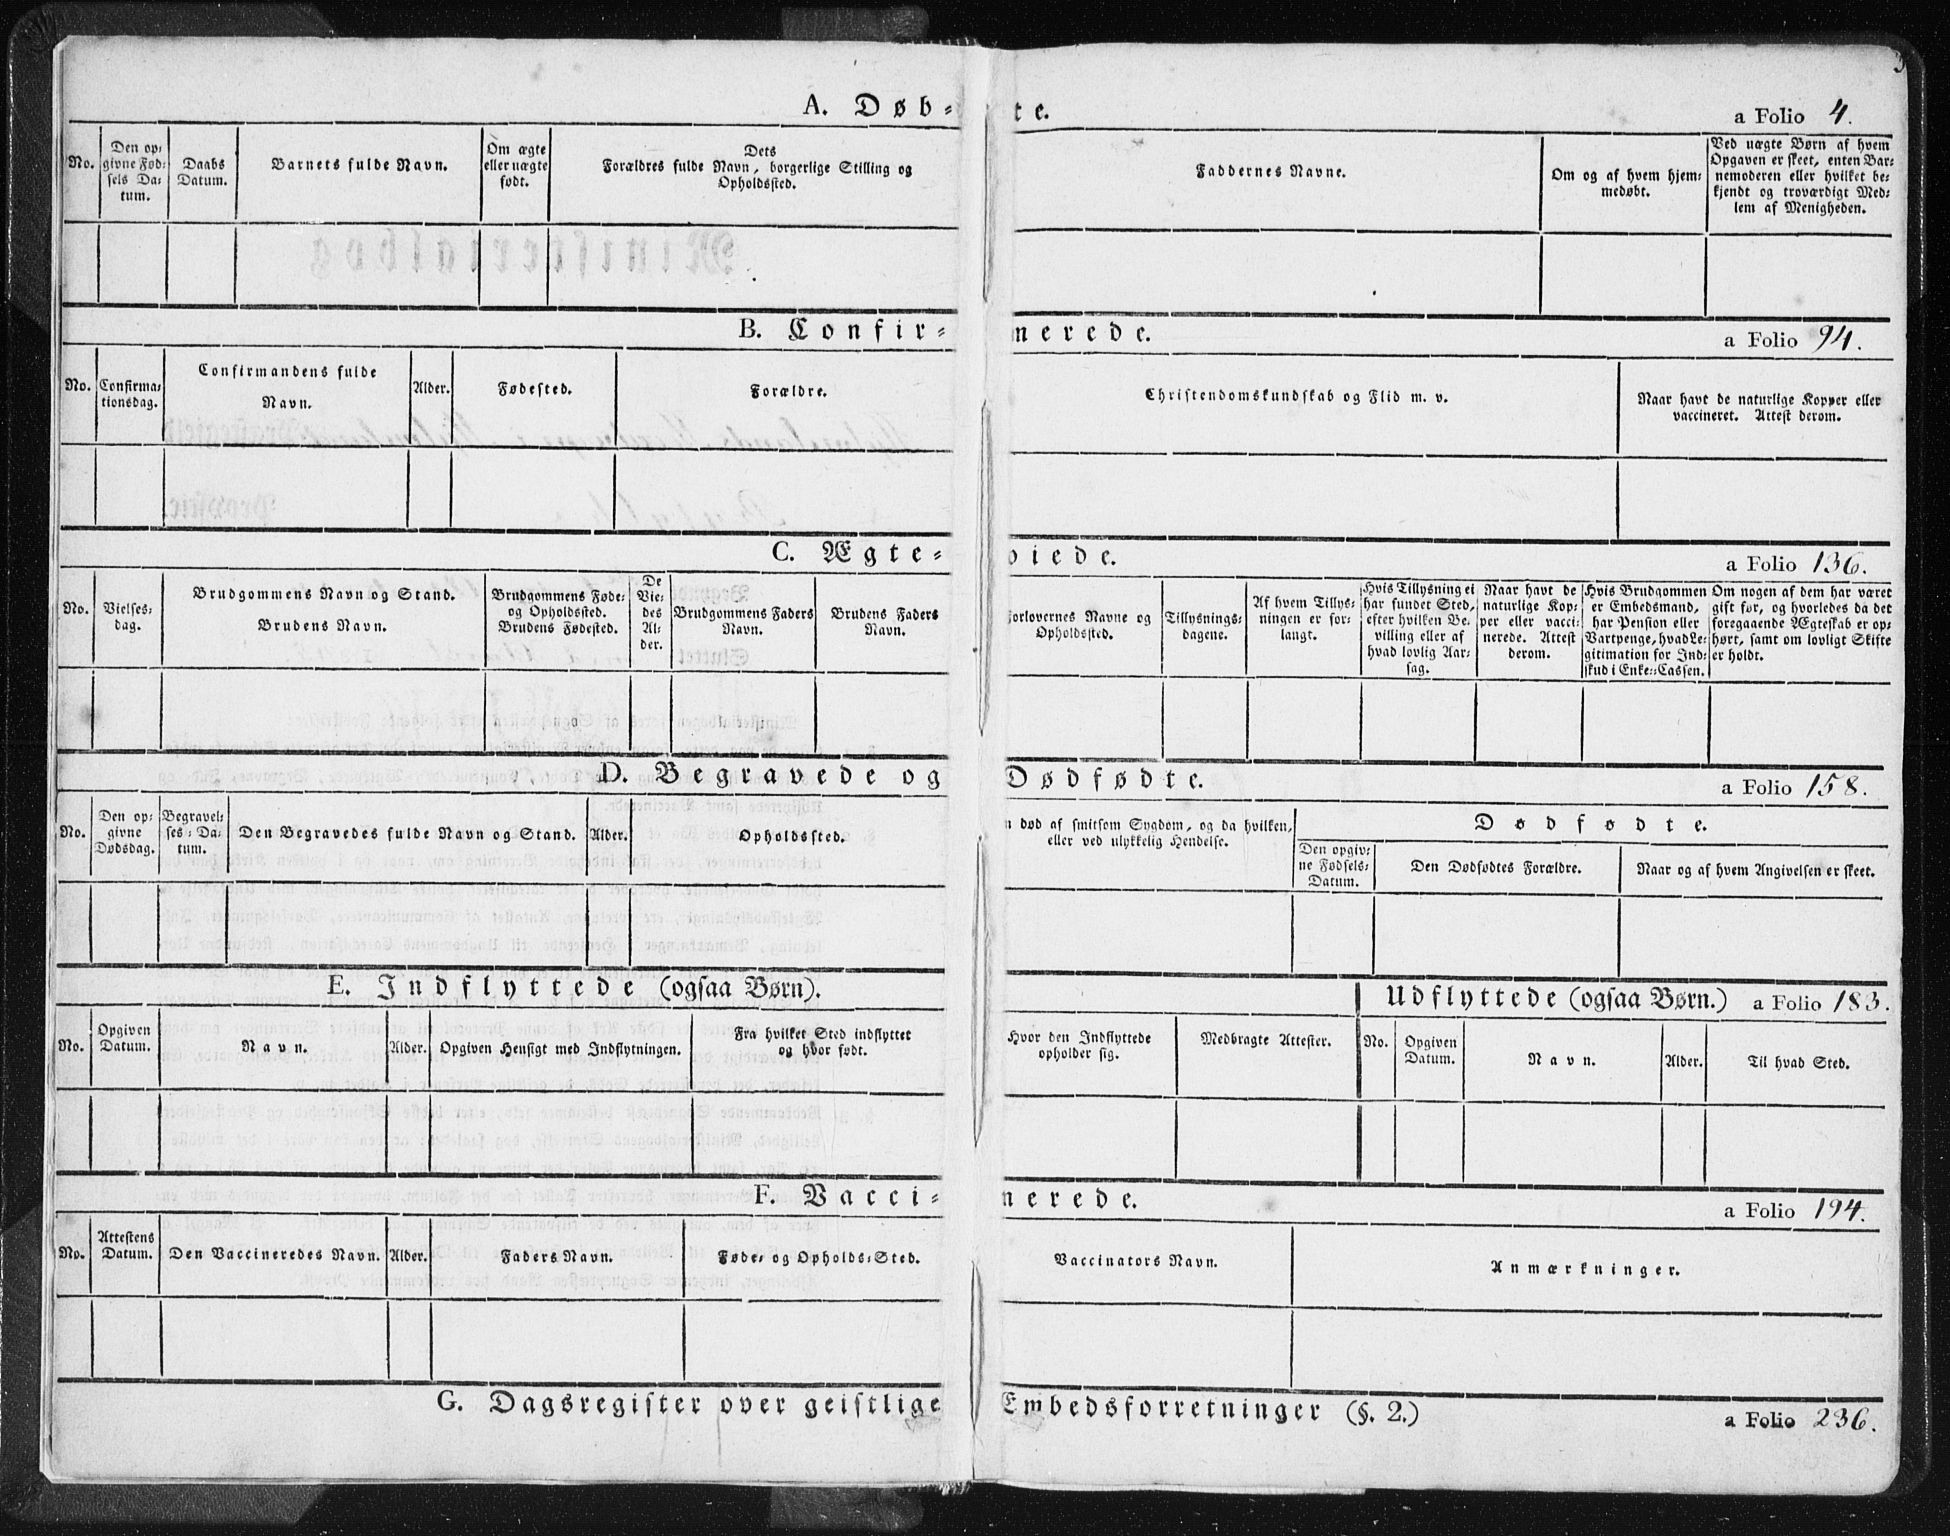 A. Døb- te. a Folio 4.
No.
Den op-
givne Fød-
sels Da-
tum.
Daabs
Datum.
Barnets fulde Navn.
Om ægte
eller uægte
født.
Dets
Forældres fulde Navn, borgerlige Stilling og
Opholdssted.
Faddernes Navne.
Om og af hvem hjem-
medøbt.
Ved uægte Børn af hvem
Opgaven er skeet, enten Bar-
nemoderen eller hvilket be-
kjendt og troværdigt Med-
lem af Menigheden.
B. Confir- merede. a Folio 94.
No.
Confirma-
tionsdag.
Confirmandens fulde
Navn.
Alder.
Fødested.
Forældre.
Christendomskundskab og Flid m. v.
Naar havt de naturlige Kopper eller
vaccineret. Attest derom.
C. Ægte- viede. a Folio 136.
No.
Vielses-
dag.
Brudgommens Navn og Stand.
Brudens Navn.
Brudgommens Føde-
og Opholdssted.
Brudens Fødested.
De
Vie-
des
Al-
der.
Brudgommens Faders
Navn.
Brudens Faders
Navn.
Forlovernes Navne og
Opholdssted.
Tillysnings-
dagene.
Af hvem Tillys-
ningen er for-
langt.
Hvis Tillysning ei
har fundet Sted,
efter hvilken Be-
villing eller af
hvad lovlig Aar-
sag.
Naar havt de
naturlige Kop-
per eller vacci-
nerede. Attest
derom.
Hvis Brudgommen
er Embedsmand,
har Pension eller
Vartpenge, hvad Le-
gitimation for Ind-
skud i Enke-Cassen.
Om nogen af dem har været
gift før, og hvorledes da det
foregaaende Ægteskab er op-
hørt, samt om lovligt Skifte
er holdt.
D. Begravede og Dødfødte. a Folio 158.
No.
Den op-
givne
Dødsdag.
Begravel-
ses-Da-
tum.
Den Begravedes fulde Navn og Stand.
Alder.
Opholdssted.
n død af smitsom Sygdom, og da hvilken,
eller ved ulykkelig Hendelse.
Dødfødte.
Den opgiv-
ne Fødsels-
Datum.
Den Dødfødtes Forældre.
Naar og af hvem Angivelsen er skeet.
E. Indflyttede (ogsaa Børn). Udflyttede (ogsaa Børn.) a Folio 183.
No.
Opgiven
Datum.
Navn.
Alder.
Opgiven Hensigt med Indflytningen.
Fra hvilket Sted indflyttet
og hvor født.
Hvor den Indflyttede
opholder sig.
Medbragte Attester.
No.
Opgiven
Datum.
Navn.
Alder.
Til hvad Sted.
F. Vacci- nerede. a Folio 194.
No.
Attestens
Datum.
Den Vaccineredes Navn.
Alder.
Faders Navn.
Føde- og Opholds-Sted.
Vaccinators Navn.
Anmærkninger.
G. Dagsregister over geistlige Embedsforretninger (§. 2.) a Folio 236.